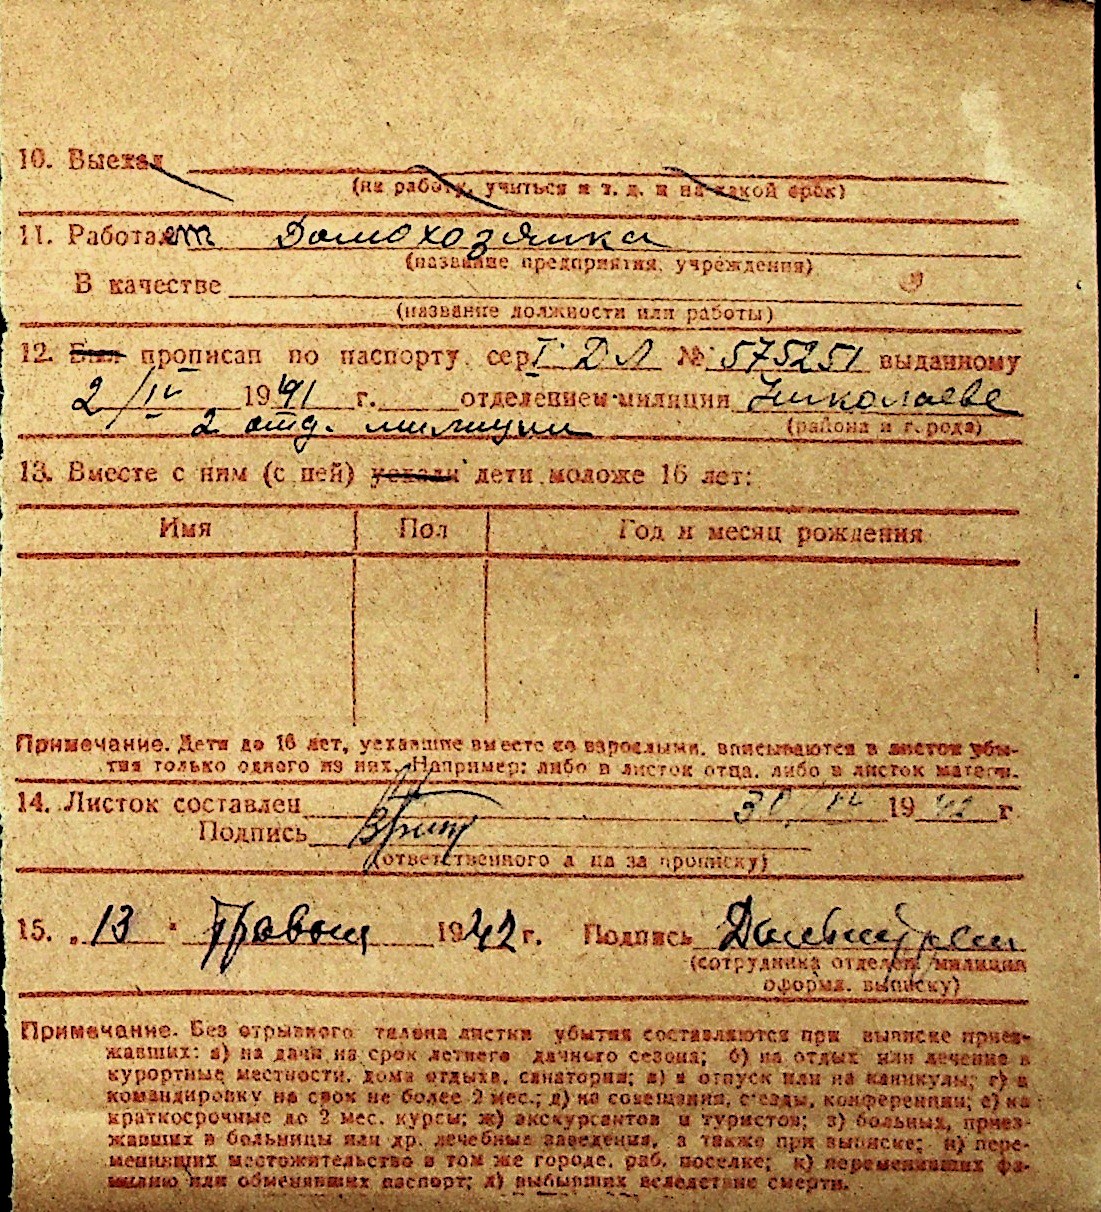 10. Выехал
(на работу, учиться и т. д. и на какой срок)
11. Работает Домохозяйка
(название предприятия, учреждения)
В качестве
(название должности или работы)
12. Был прописан по паспорту сер I ДЛ № 575251 выданному
2/IV 1941 г. отделением милиции Николаеве
2 отд. милиции (района и города)
13. Вместе с ним (с ней) уехали дети моложе 16 лет:
Имя Пол Год и месяц рождения
Примечание. Дети до 16 лет, уехавшие вместе со взрослыми, вписываются в листок убы-
тия только одного из них. Например: либо в листок отца, либо в листок матери.
14. Листок составлен 30. IV 1942 г
Подпись
(ответственного л ца за прописку)
15. „13" травня 1942 г. Подпись
(сотрудника отделен. милиции
оформл. выписку)
Примечание. Без отрывного талона листки убытия составляются при выписке приез-
жавших: а) на дачи на срок летнего дачного сезона; б) на отдых или лечение в
курортные местности, дома отдыха, санатории; в) в отпуск или на каникулы; г) в
командировку на срок не более 2 мес.; д) на совещания, с'езды, конференции; е) на
краткосрочные до 2 мес. курсы; ж) экскурсантов и туристов; з) больных, приез-
жавших в больницы или др. лечебные заведения, а также при выписке; и) пере-
менивших местожительство в том же городе, раб. поселке; к) переменивших фа-
милию или обменявших паспорт; л) выбывших вследствие смерти.